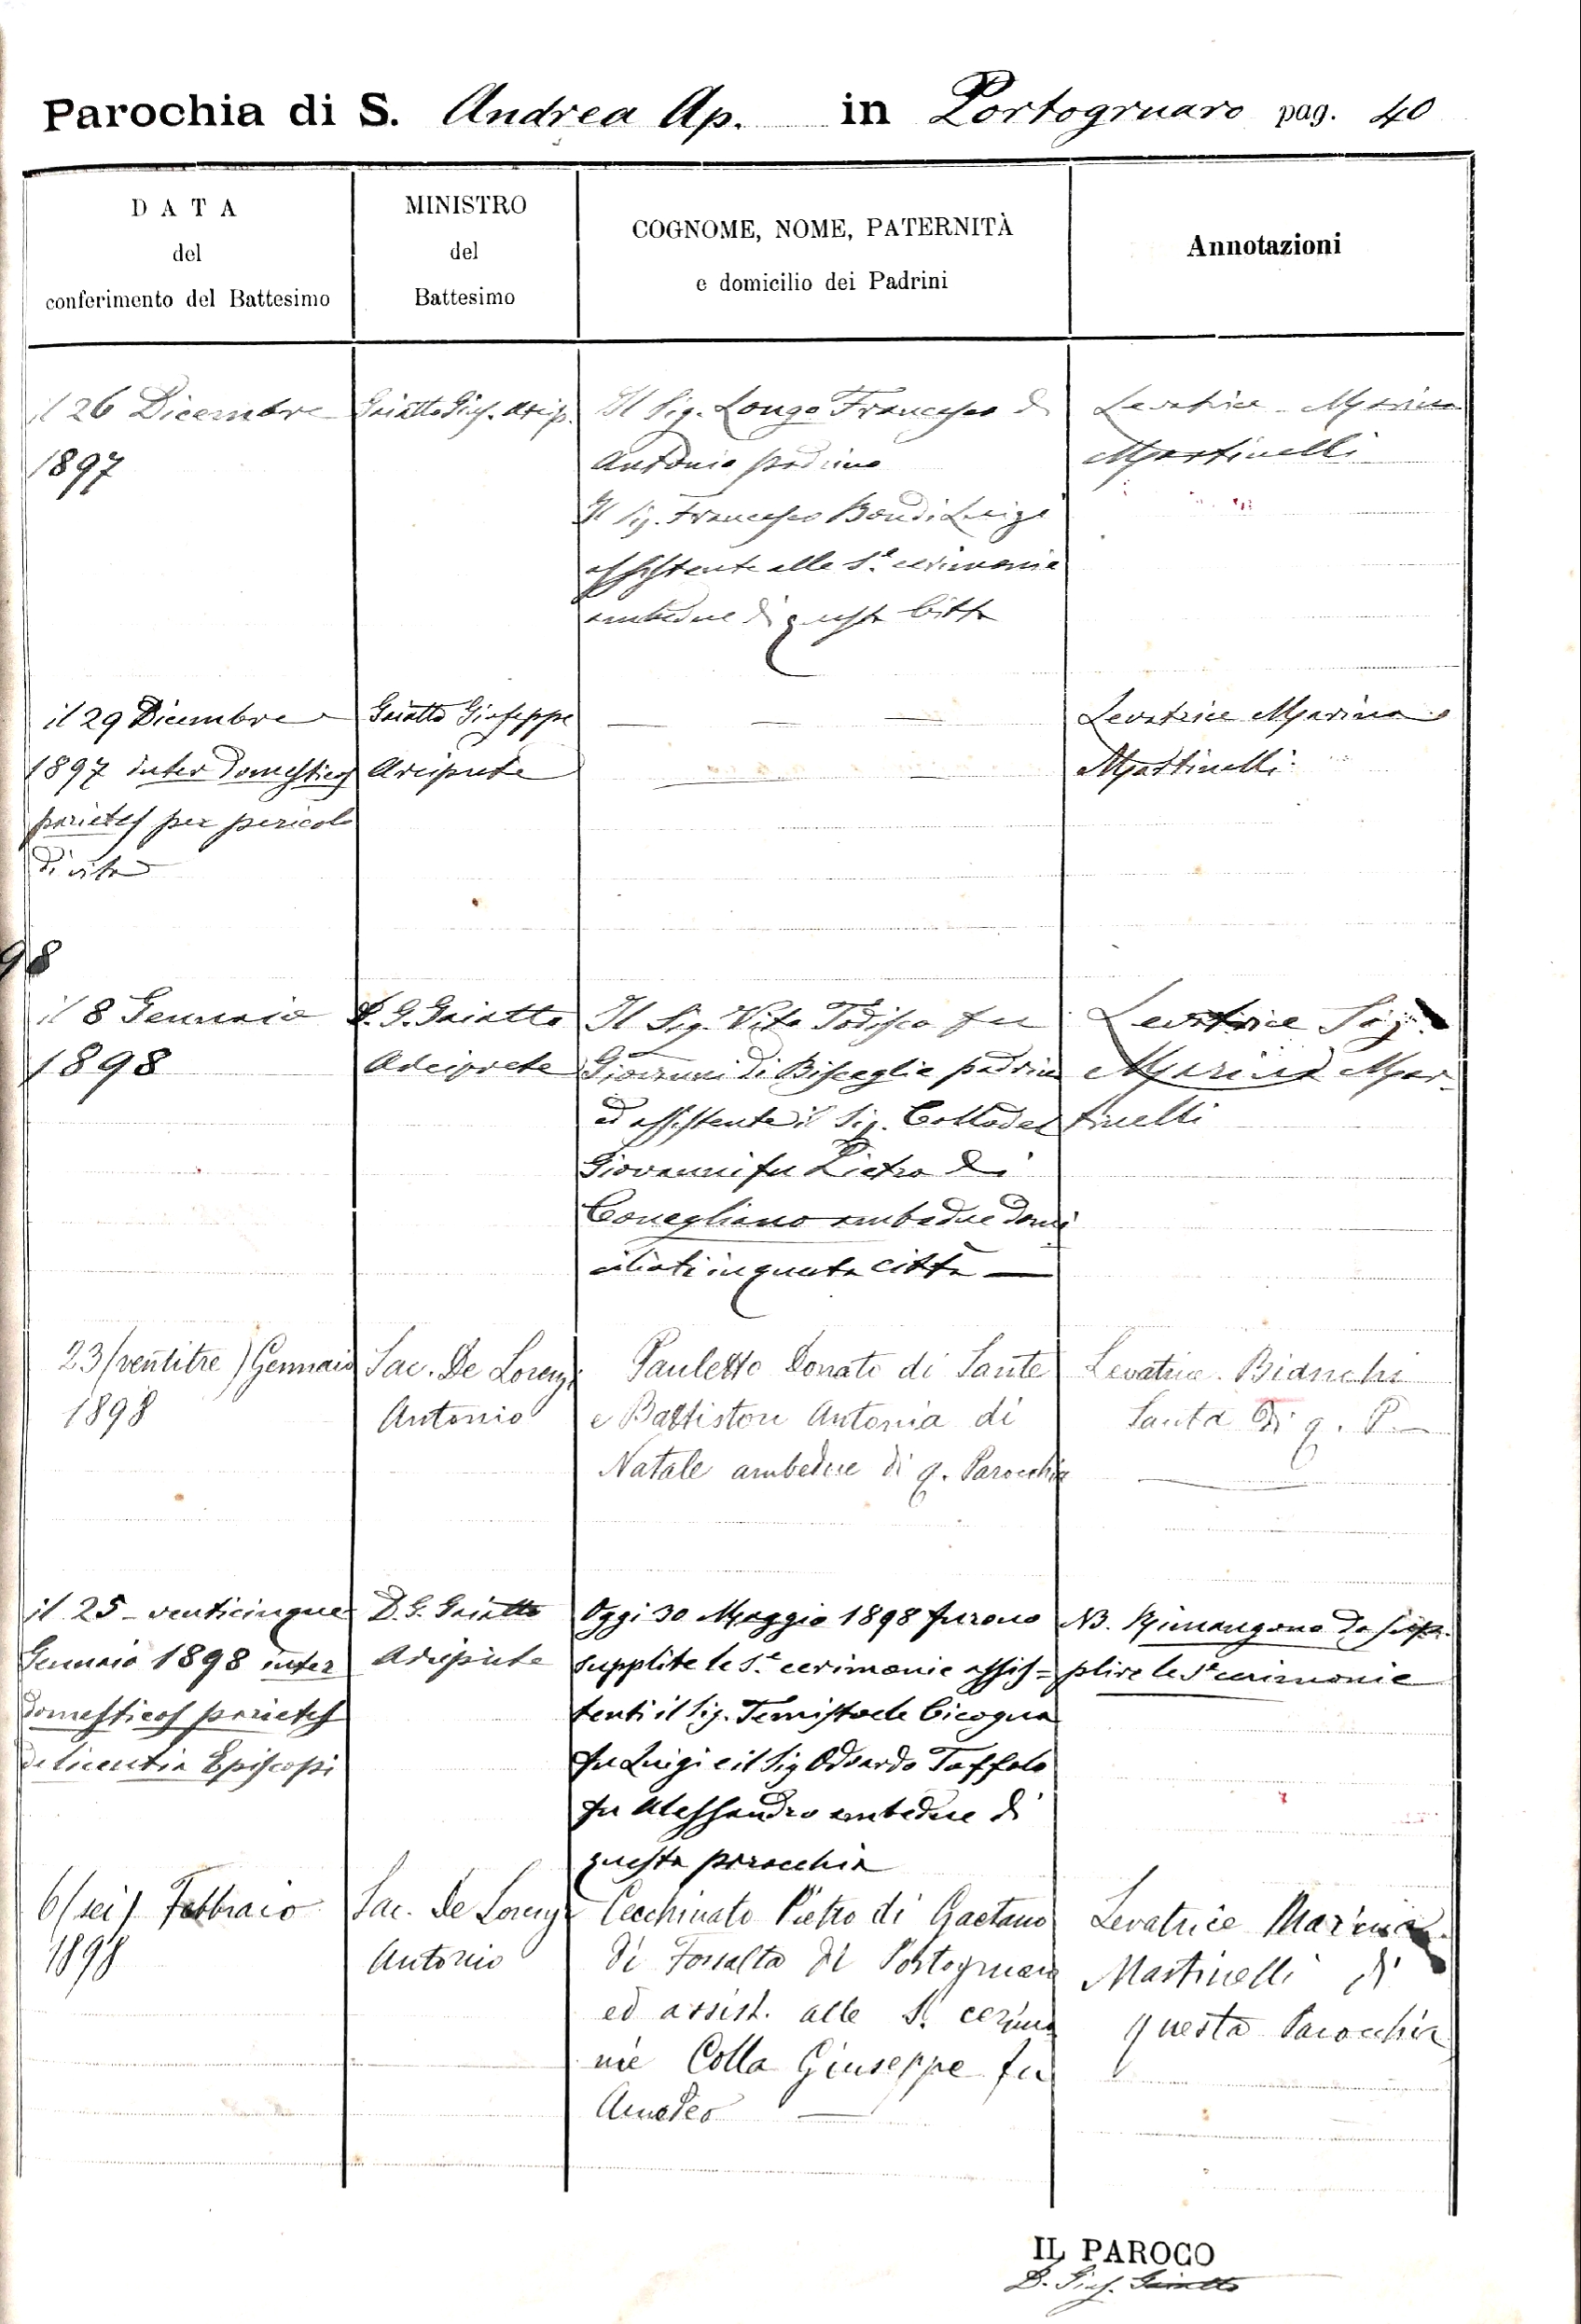 Parochia di S. Andrea Ap. in Portogruaro pag. 40
DATA
del
conferimento del Battesimo
MINISTRO
del
Battesimo
COGNOME, NOME, PATERNITÀ
e domicilio dei Padrini
Annotazioni
il 26 Dicembre
1897
Gaiatto Gius. Arcip.
Il Sig. Longo Francesco di
Antonio padrino
Il Sig. Francesco Bondi Luigi
assistente alle S.e cerimonie
ambedue di questa Città
Levatrice Marina
Martinelli
il 29 Dicembre
1897 inter domesticos
parietes per pericolo
di vita
Gaiatto Giuseppe
Arciprete
Levatrice Marina
Martinelli
98
il 8 Gennaio
1898
D. G. Gaiatto
Arciprete
Il Sig. Vito Todisco fu
Giovanni di Bisceglie padrino
ed assistente il Sig.
Giovanni fu Pietro di
Conegliano ambedue domi
ciliati in questa città
Levatrice Sig.
Marina Mar-
tinelli
23 (ventitre) Gennaio
1898
Sac. De Lorenzi
Antonio
Pauletto Donato di Sante
e Battiston Antonia di
Natale ambedue di q. Parocchia
Levatrice Bianchi
Santa di q. P.
il 25 - venticinque
Gennaio 1898 inter
domesticos parietes
de licentia Episcopi
D. G. Gaiatto
Arciprete
Oggi 30 Maggio 1898 furono
supplite le S.e cerimonie assis=
tenti il Sig. Temistocle Cicogna
fu Luigi e il Sig Odoardo Toffolo
fu Alessandro ambedue di
questa parocchia
NB. Rimangono da sup-
plire le S.e cerimonie
6 (sei) Febbraio
1898
Sac. De Lorenzi
Antonio
Cecchinato Pietro di Gaetano
di Fossalta di Portogruaro
ed assist. alle S. cerimo
nie Colla Giuseppe fu
Amadeo
Levatrice Marina
Martinelli di
questa Parocchia
IL PAROCO
D. Gius. Gaiatto